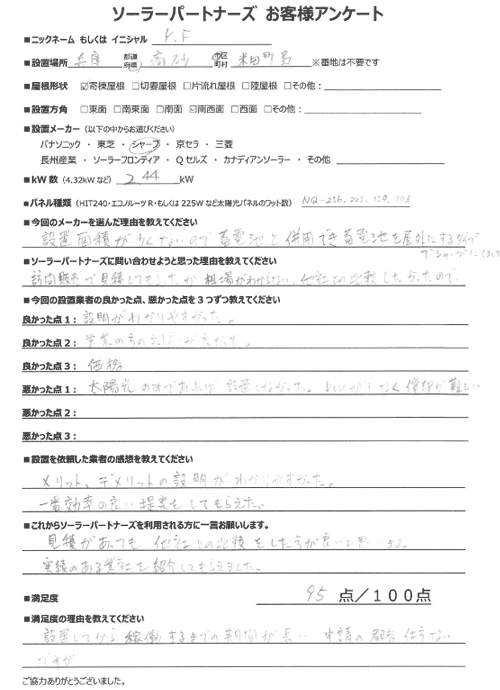 ソーラーパートナーズ お客様アンケート
■ニックネーム もしくは イニシャル Y.F
■設置場所 兵庫 都道府県 高砂 市区町村 米田町島 ※番地は不要です
■屋根形状 ☑寄棟屋根 □切妻屋根 □片流れ屋根 □陸屋根 □その他：
■設置方角 □東面 □南東面 □南面 ☑南西面 □西面 □その他：
■設置メーカー（以下の中からお選びください）
パナソニック ・ 東芝 ・ シャープ ・ 京セラ ・ 三菱
長州産業 ・ ソーラーフロンティア ・ Qセルズ ・ カナディアンソーラー ・ その他
■kW数（4.32kWなど） 2.44 kW
■パネル種類（HIT240・エコノルーツR・もしくは 225W など太陽光パネルのワット数） NQ-256, 203, 159, 103
■今回のメーカーを選んだ理由を教えてください
設置面積が少くないので 蓄電池と併用でき蓄電池を屋外にするタイプ
でシャープにしました
■ソーラーパートナーズに問い合わせようと思った理由を教えてください
訪問販売で見積してもらったが 相場がわからない、他社との比較したかったので
■今回の設置業者の良かった点、悪かった点を３つずつ教えてください
良かった点１： 説明がわかりやすかった。
良かった点２： 営業の方の対応が良かった。
良かった点３： 価格
悪かった点１： 太陽光のみであれば 設置しなかった。
悪かった点２：
悪かった点３：
■設置を依頼した業者の感想を教えてください
メリット、デメリットの説明がわかりやすかった。
一番効率の良い提案をしてもらえた。
■これからソーラーパートナーズを利用される方に一言お願いします。
見積があっても 他社との比較をした方が良いと思います。
実績のある業社を紹介してもらえました。
■満足度 95 点／１００点
■満足度の理由を教えてください
設置してから 稼働するまでの期間が長い 申請の都合 仕方ない
ですが
ご協力ありがとうございました。